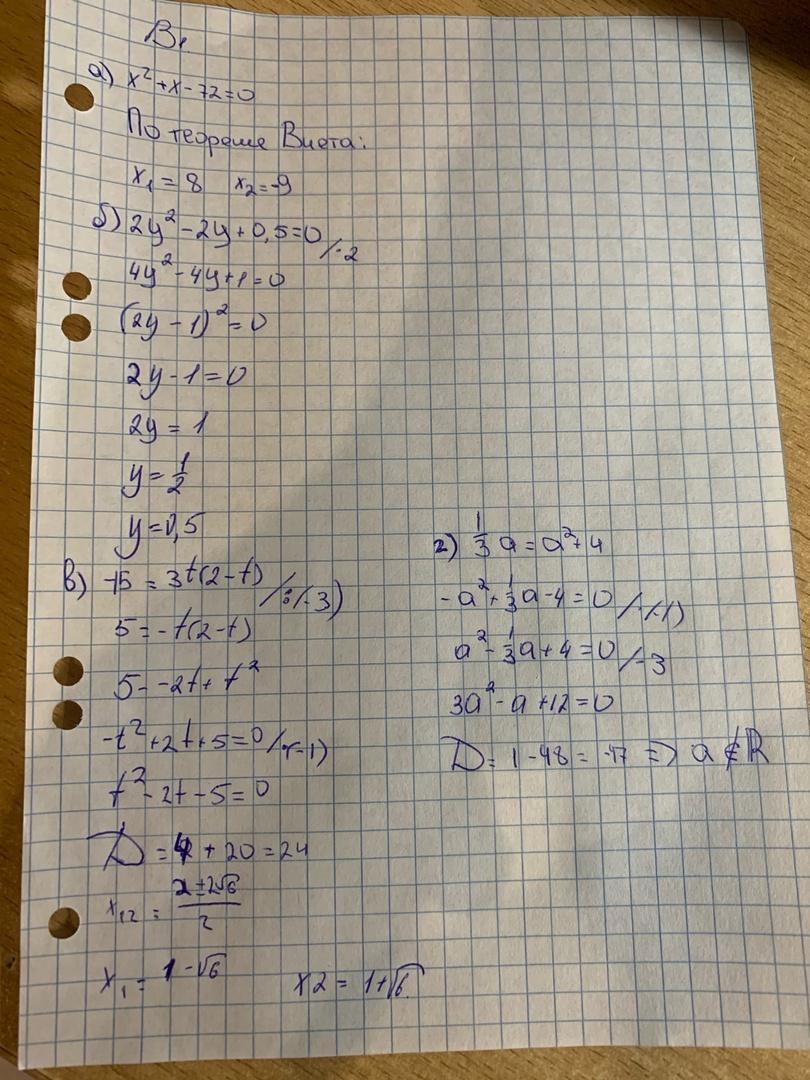 В1
а) x² + x - 72 = 0
По теореме Виета:
x₁ = 8 x₂ = -9
б) 2y² - 2y + 0,5 = 0 /·2
4y² - 4y + 1 = 0
(2y - 1)² = 0
2y - 1 = 0
2y = 1
y = 1/2
y = 0,5
в) -15 = 3t(2 - t) /:(-3)
5 = -t(2 - t)
5 = -2t + t²
-t² + 2t + 5 = 0 /·(-1)
t² - 2t - 5 = 0
D = 4 + 20 = 24
x₁₂ = (2 ± 2√6)/2
x₁ = 1 - √6 x2 = 1 + √6
г) 1/3 a = a² + 4
-a² + 1/3 a - 4 = 0 /·(-1)
a² - 1/3 a + 4 = 0 /·3
3a² - a + 12 = 0
D = 1 - 48 = -47 => a ∉ ℝ